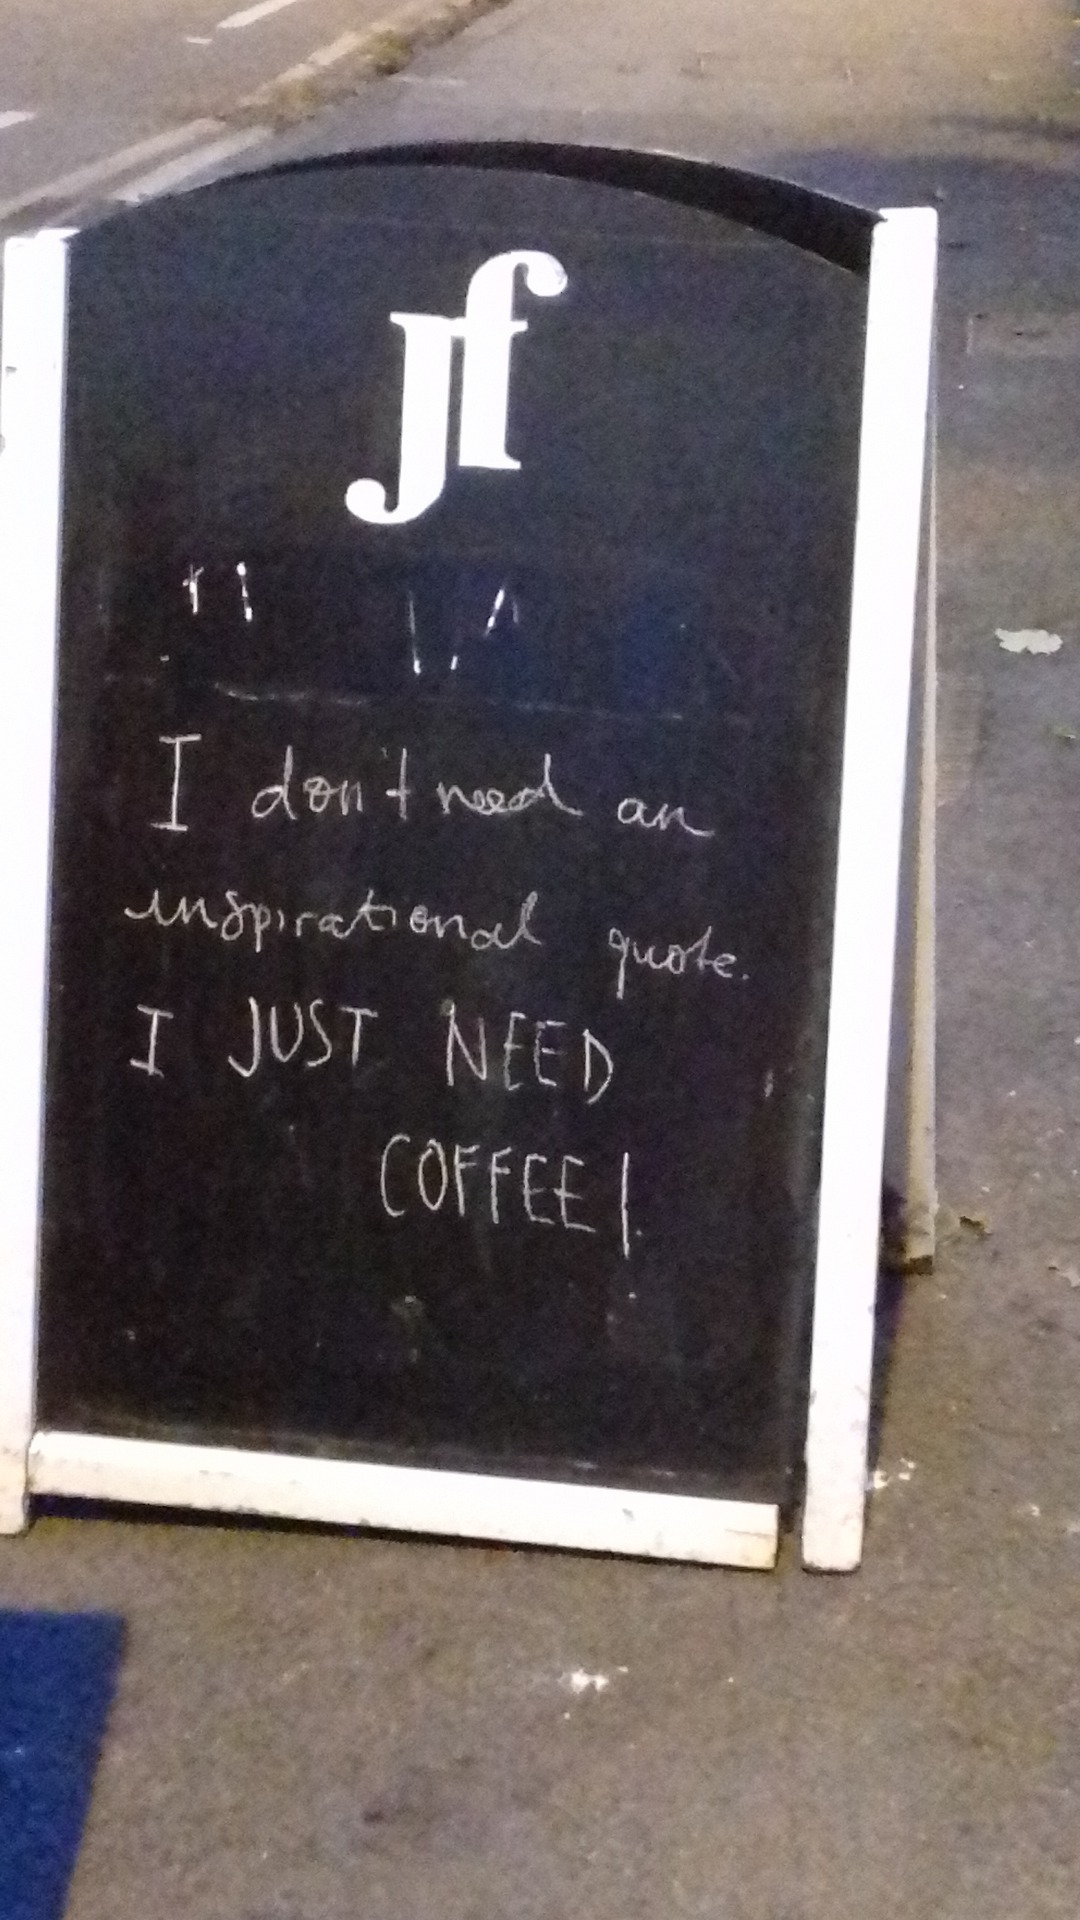 Jf
I don't need an
inspirational quote.
I JUST NEED
COFFEE!